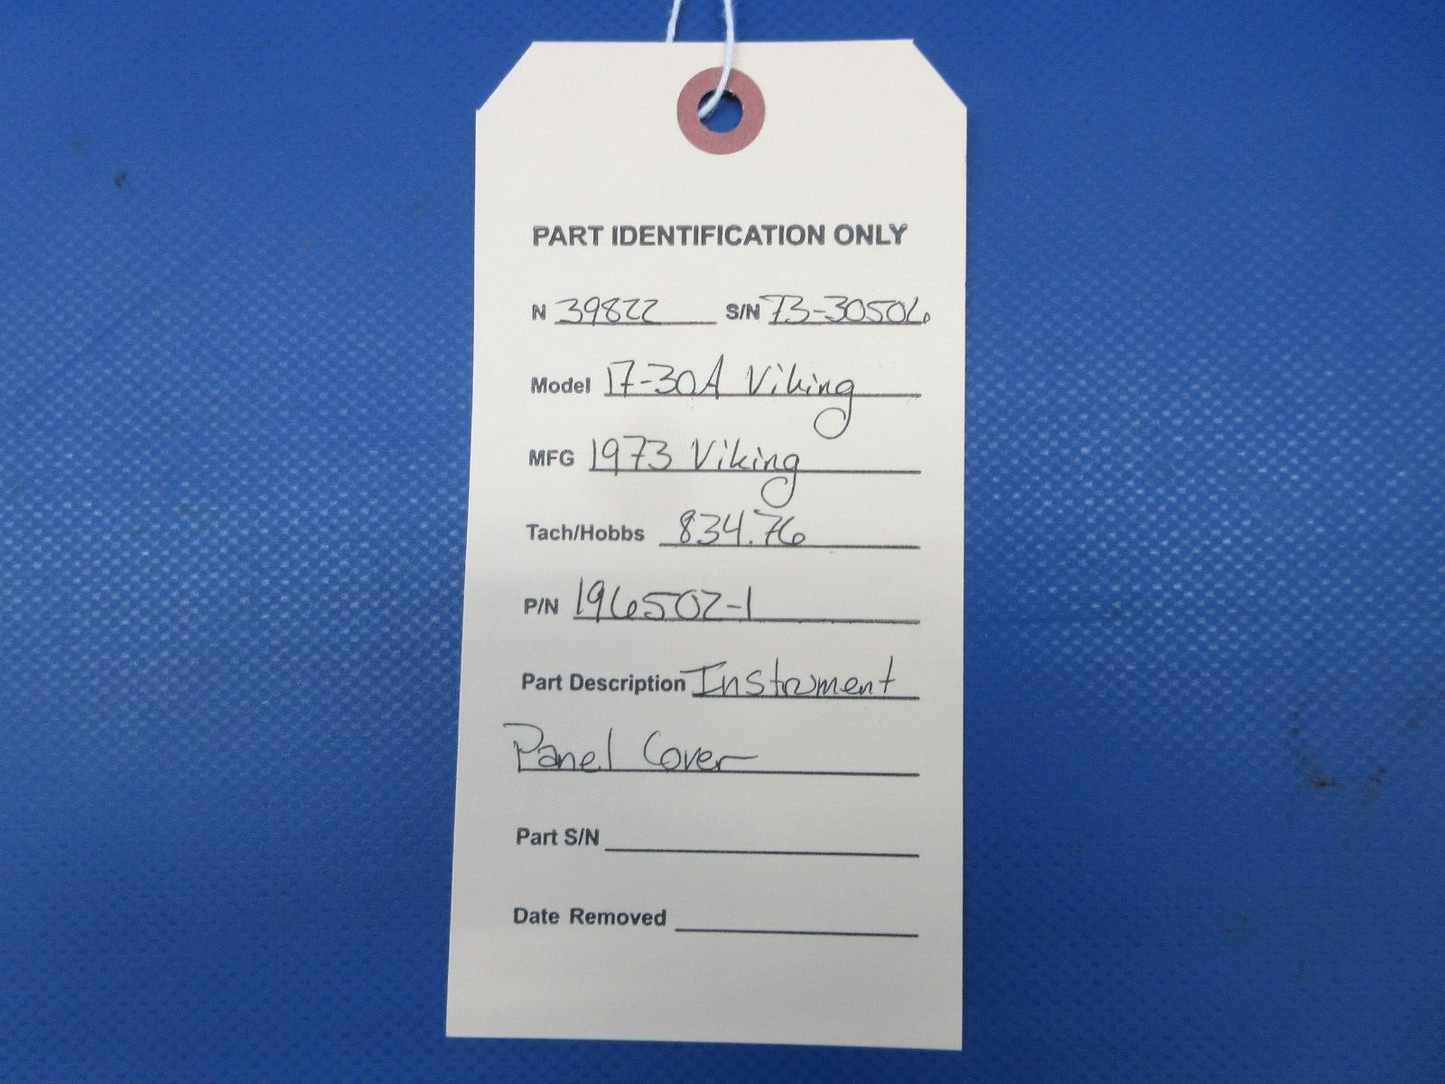 PART IDENTIFICATION ONLY
N 39822 S/N 73-30506
Model 17-30A Viking
MFG 1973 Viking
Tach/Hobbs 834.76
P/N 196502-1
Part Description Instrument
Panel Cover
Part S/N
Date Removed